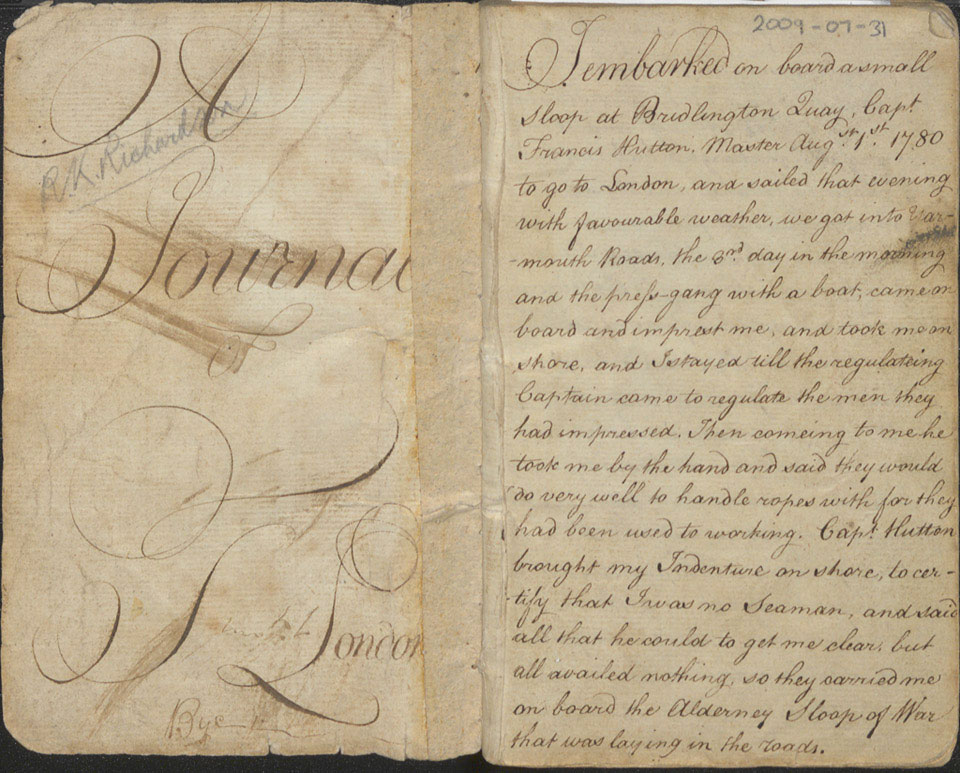 A
R.K. Richardson
Journal
London
Bye
2009-07-31
I embarked on board a small
sloop at Bridlington Quay, Capt.
Francis Hutton, Master Aug.st 1.st 1780
to go to London, and sailed that evening
with favourable weather, we got into Yar-
-mouth Roads, the 3.rd day in the morning
and the press-gang with a boat, came on
board and imprest me, and took me on
shore, and I stayed till the regulateing
Captain came to regulate the men they
had impressed. Then comeing to me he
took me by the hand and said they would
do very well to handle ropes with for they
had been used to working. Capt. Hutton
brought my Indenture on shore, to cer-
-tify that I was no Seaman, and said
all that he could to get me clear, but
all availed nothing, so they carried me
on board the Alderney Sloop of War
that was laying in the roads.